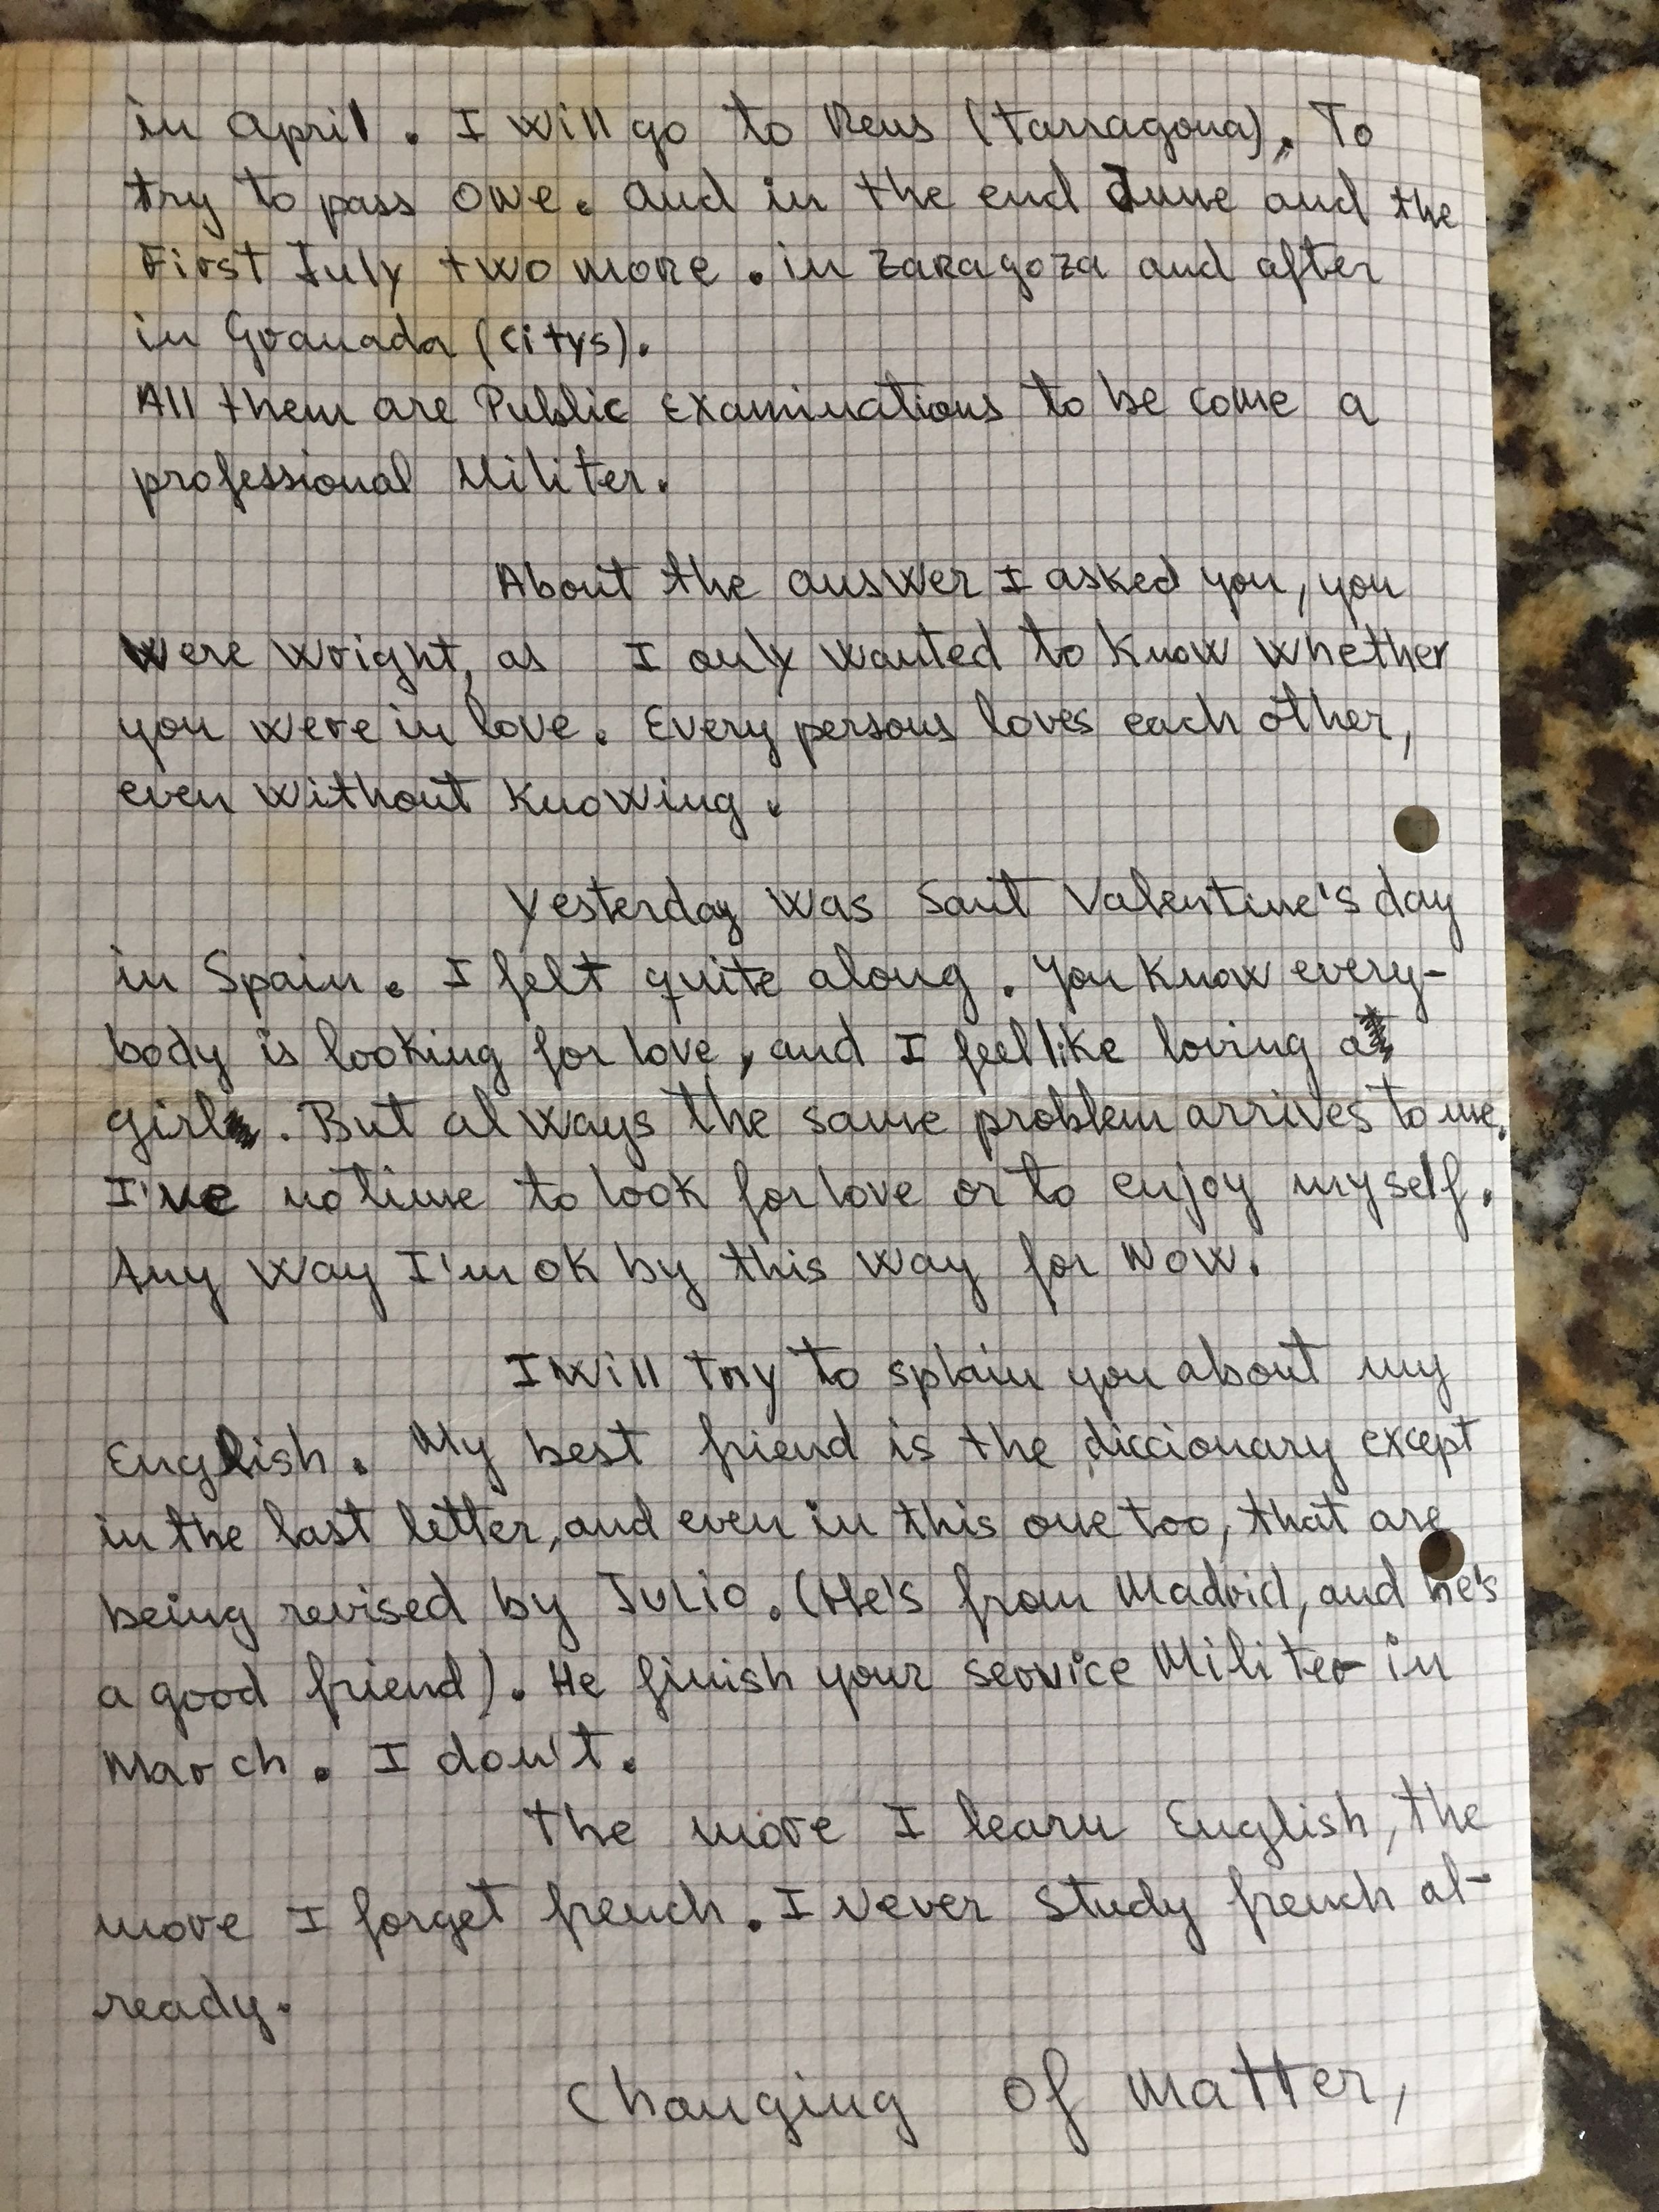 in April. I will go to Reus (tarragona). To
try to pass one. and in the end June and the
First July two more. in Zaragoza and after
in Granada (citys).
All them are Public Examinations to be come a
professional Militer.
About the answer I asked you, you
were wright, as I only wanted to know whether
you were in love. Every persons loves each other,
even without knowing.
Yesterday was Sant Valentine's day
in Spain. I felt quite along. You know every-
body is looking for love, and I feel like loving a
girl. But always the same problem arrives to me.
I've no time to look for love or to enjoy myself.
Any way I'm ok by this way for now.
I will try to splain you about my
English. My best friend is the diccionary except
in the last letter, and even in this one too, that are
being revised by Julio. (He's from Madrid, and he's
a good friend). He finish your service Militer in
March. I don't.
The more I learn English, the
more I forget french. I never study french al-
ready.
Changing of matter,